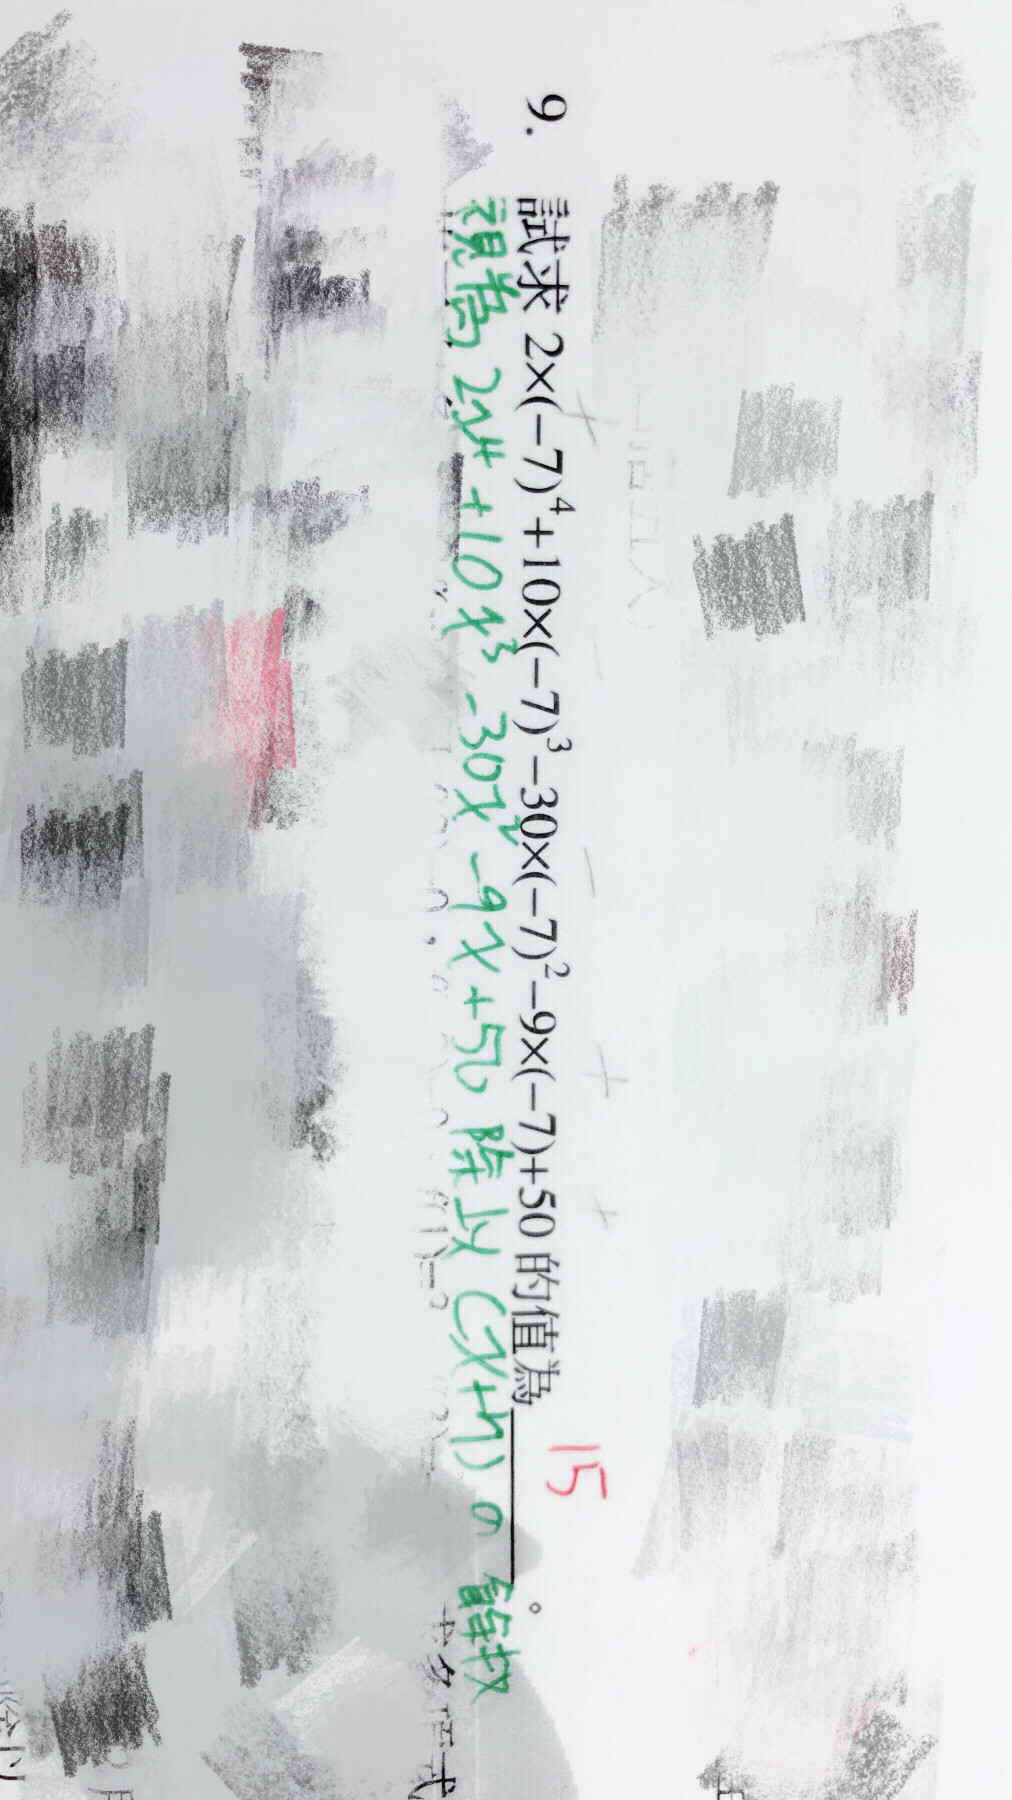 15
9. 試求 2×(−7)⁴+10×(−7)³−30×(−7)²−9×(−7)+50 的值為______。
視為 2x⁴+10x³-30x²-9x+50 除以 (x+7) の 餘數